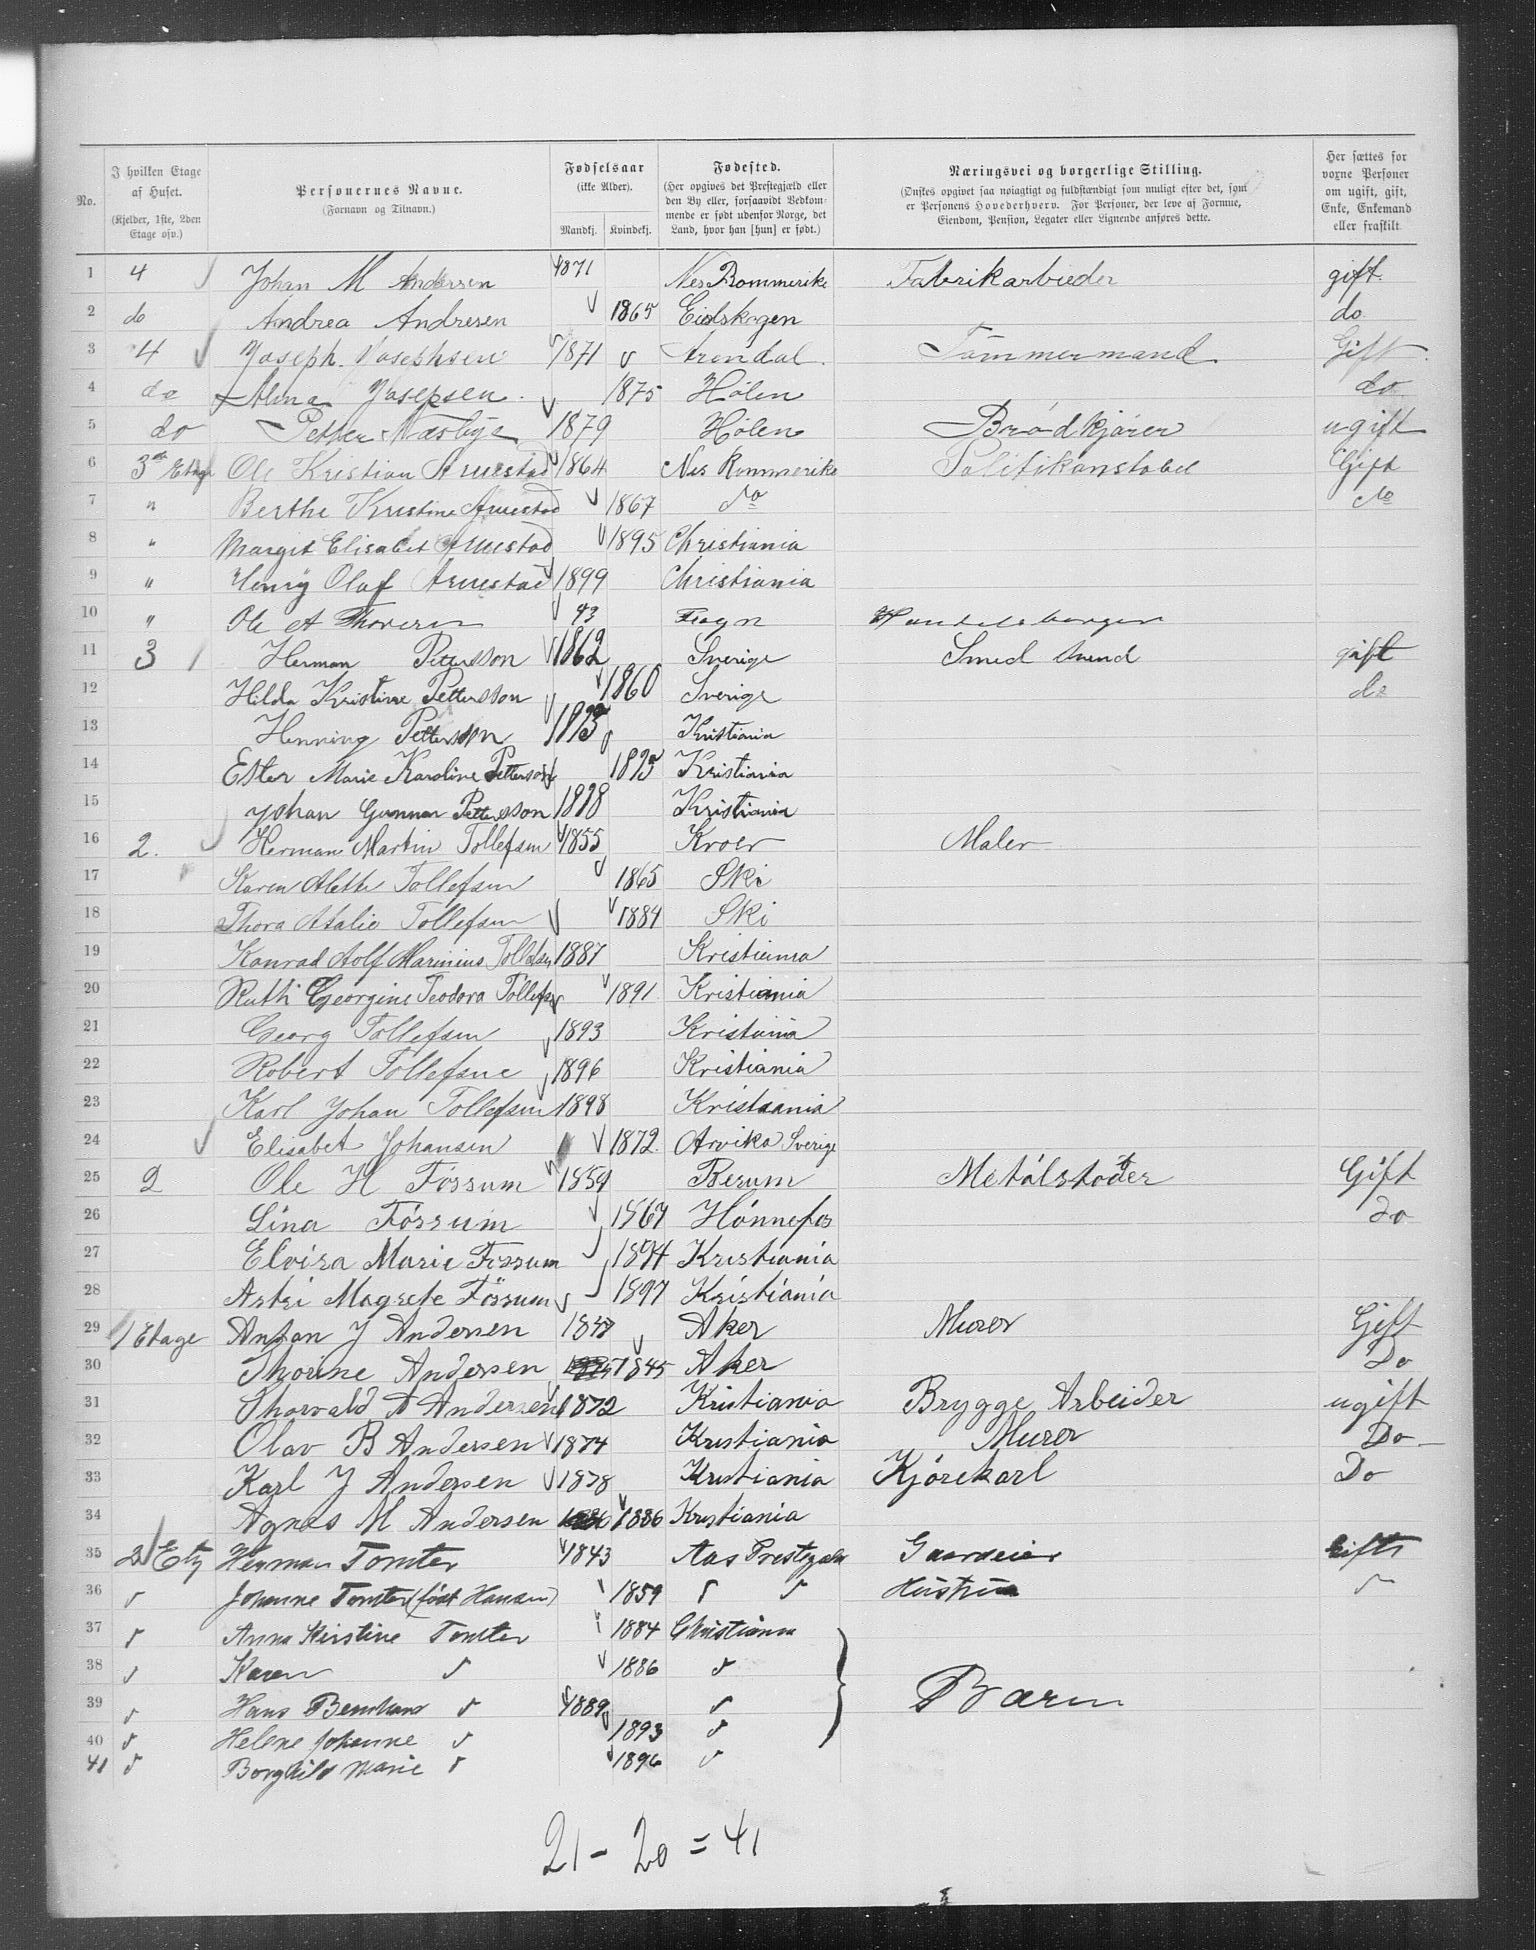 No.
I hvilken Etage af Huset.
(Kjelder, 1ste, 2den Etage osv.)
Personernes Navne.
(Fornavn og Tilnavn.)
Fødselsaar
(ikke Alder).
Mandkj. Kvindekj.
Fødested.
(Her opgives det Prestegjæld eller den By eller, forsaavidt Vedkommende er født udenfor Norge, det Land, hvor han [hun] er født.)
Næringsvei og borgerlige Stilling.
(Ønskes opgivet saa nøiagtigt og fuldstændigt som muligt efter det, som er Personens Hovederhverv. For Personer, der leve af Formue, Eiendom, Pension, Legater eller Lignende anføres dette.
Her sættes for voxne Personer om ugift, gift, Enke, Enkemand eller fraskilt
1 4 Johan M Andersen 1871 Nes Rommerike Fabrikarbieder gift.
2 do Andrea Andresen 1865 Eidskogen do
3 4 Joseph. Josephsen 1871 Arendal. Tømmermand Gift
4 do Alma Josepsen. 1875 Hølen do
5 do Petter Næsbye 1879 Hølen Brødkjører ugift
6 3die Etage Ole Kristian 1864 Nes Rommerike Politikonstabel Gift
7 " Berthe Kristine 1867 do do
8 " Margit Elisabet 1895 Christiania
9 " Henry Olaf 1899 Christiania
10 " Ole A Thoresen 43
11 3 Herman Pettersson 1862 Sverige Smed Svend gift
12 Hilda Kristine Pettersson 1860 Sverige do
13 Henning Pettersson 1893 Kristiania
14 Ester Marie Karoline Pettersson 1895 Kristiania
15 Johan Gunnar Pettersson 1898 Kristiania
16 2. Herman Martin Tollefsen 1855 Kroer Maler
17 Karen Alette Tollefsen 1865 Ski
18 Thora Atalie Tollefsen 1884 Ski
19 Konrad Adolf Marinius Tollefsen 1887 Kristiania
20 Ruth Georgine Teodora Tollefsen 1891 Kristiania
21 Georg Tollefsen 1893 Kristiania
22 Robert Tollefsne 1896 Kristiania
23 Karl Johan Tollefsen 1898 Kristiania
24 Elisabet Johansen 1872. Arvika Sverige
25 2 Ole H Fossum 1859 Berum Metalstøder Gift
26 Lina Fossum 1867 Hønnefos do
27 Elvira Marie Fossum 1894 Kristiania
28 Astri Magrete Fossum 1897 Kristiania
29 1 Etage Anton J Andersen 1847 Aker Murer Gift
30 Thorine Andersen 1845 Aker Do
31 Thorvald A Andersen 1872 Kristiania Brygge Arbeider ugift
32 Olav B Andersen 1874 Kristiania Murer Do
33 Karl J Andersen 1878 Kristiania Kjørekarl Do
34 Agnes M Andersen 1886 Kristiania
35 2 Etg Herman Tomter 1843 Aas Prestegjæld Gaardeier Gift
36 " Johanne Tomter (født Hansen) 1859 " " Hustru "
37 " Anna Kirstine Tomter 1884 Christiania
38 " Karen " 1886 "
39 " Hans Bernhard " 1889 " Børn
40 " Helene Johanne " 1893 "
41 " Borghild Marie " 1896 "
21 - 20 = 41